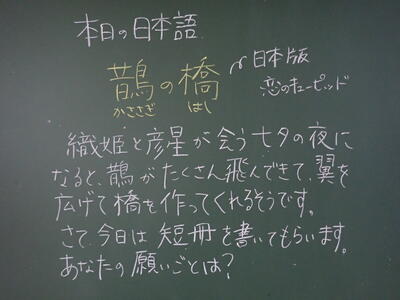 本日の日本語
鵲の橋
かささぎ はし
日本版
恋のキューピッド
織姫と彦星が会う七夕の夜に
なると、鵲がたくさん飛んできて、翼を
広げて橋を作ってくれるそうです。
さて、今日は短冊を書いてもらいます。
あなたの願いごとは?